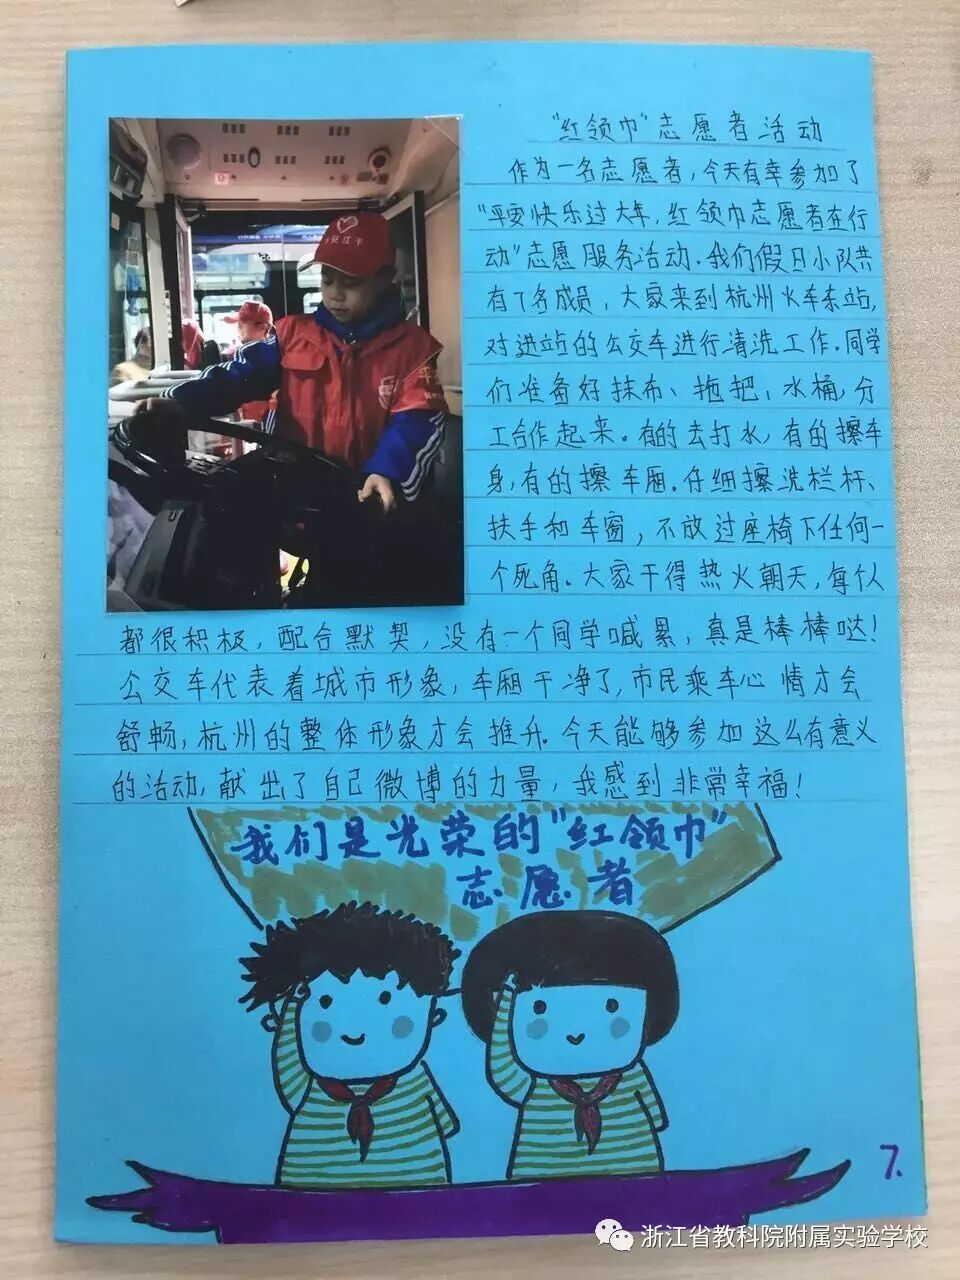 "红领巾"志愿者活动
作为一名志愿者,今天有幸参加了
"平安快乐过大年,红领巾志愿者在行
动"志愿服务活动.我们假日小队共
有7名成员,大家来到杭州火车东站,
对进站的公交车进行清洗工作.同学
们准备好抹布、拖把,水桶,分
工合作起来。有的去打水,有的擦车
身,有的擦车厢.仔细擦洗栏杆、
扶手和车窗,不放过座椅下任何一
个死角.大家干得热火朝天,每个人
都很积极,配合默契,没有一个同学喊累,真是棒棒哒!
公交车代表着城市形象,车厢干净了,市民乘车心情才会
舒畅,杭州的整体形象才会推升.今天能够参加这么有意义
的活动,献出了自己微博的力量,我感到非常幸福!
我们是光荣的"红领巾"
志愿者
7.
浙江省教科院附属实验学校